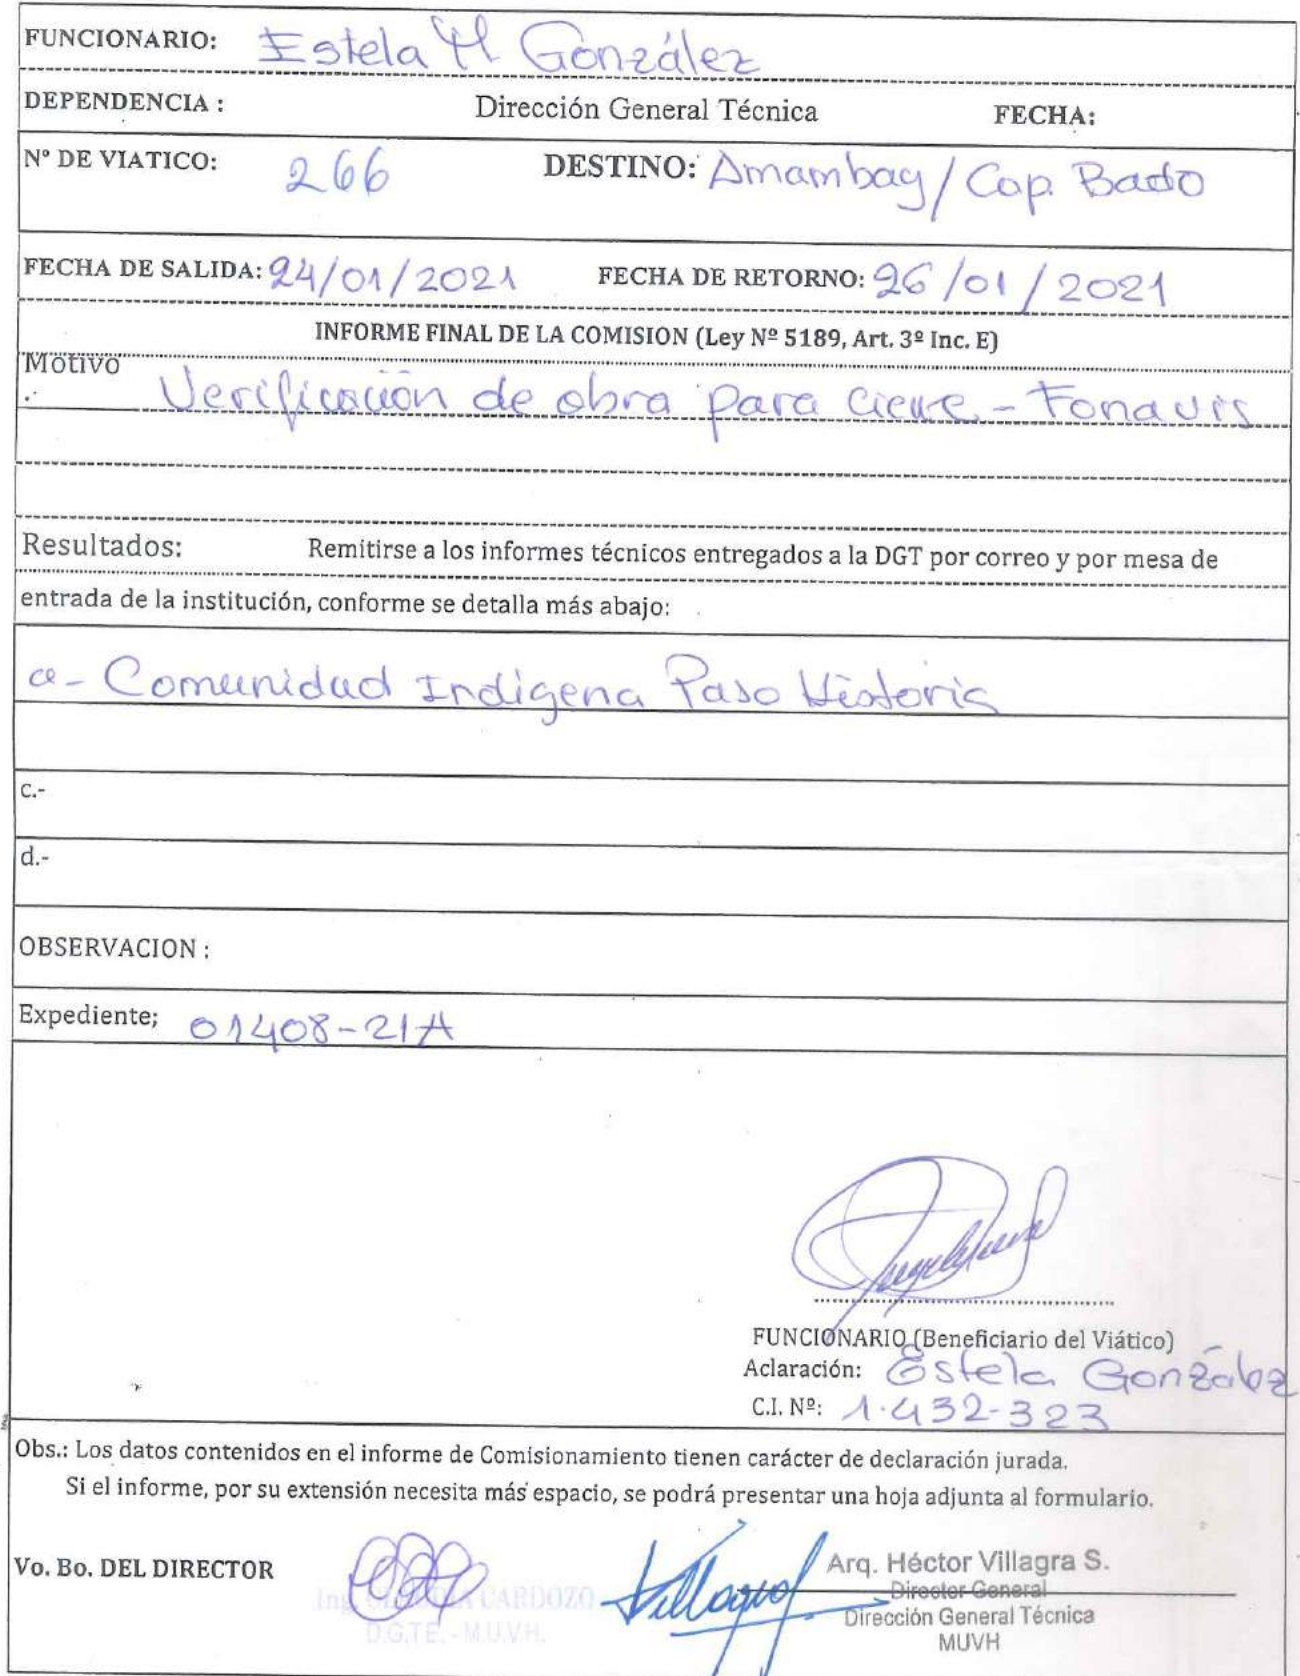 FUNCIONARIO: Estela M González
DEPENDENCIA : Dirección General Técnica FECHA:
Nº DE VIATICO: 266 DESTINO: Amambay / Cap. Bado
FECHA DE SALIDA: 24/01/2021 FECHA DE RETORNO: 26/01/2021
INFORME FINAL DE LA COMISION (Ley Nº 5189, Art. 3º Inc. E)
Motivo
Verificación de obra para cierre - Fonavis
Resultados: Remitirse a los informes técnicos entregados a la DGT por correo y por mesa de
entrada de la institución, conforme se detalla más abajo:
a- Comunidad Indigena Paso Historia
c.-
d.-
OBSERVACION :
Expediente; 01408-21A
FUNCIONARIO (Beneficiario del Viático)
Aclaración: Estela González
C.I. Nº: 1.432.323
Obs.: Los datos contenidos en el informe de Comisionamiento tienen carácter de declaración jurada.
Si el informe, por su extensión necesita más espacio, se podrá presentar una hoja adjunta al formulario.
Vo. Bo. DEL DIRECTOR
Ing. CARDOZO
D.G.TE. - M.U.V.H.
Villagra
Arq. Héctor Villagra S.
Director General
Dirección General Técnica
MUVH